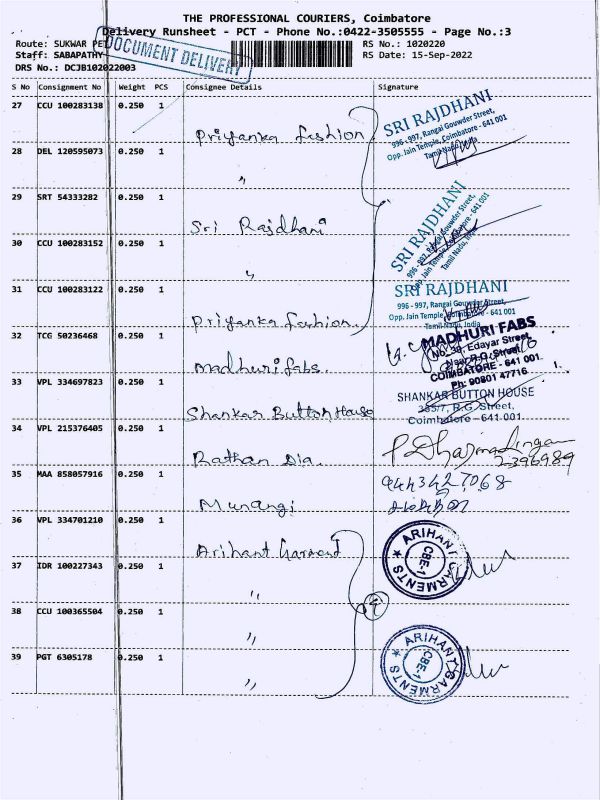 THE PROFESSIONAL COURIERS, Coimbatore
Delivery Runsheet - PCT - Phone No.:0422-3505555 - Page No.:3
Route: SUKWAR PET
RS No.: 1020220
Staff: SABAPATHY
RS Date: 15-Sep-2022
DRS No.: DCJB102022003
DOCUMENT DELIVERY
S No Consignment No Weight PCS Consignee Details Signature
27 CCU 100283138 0.250 1
Priyanka fashion
SRI RAJDHANI
996 - 997, Rangai Gouwder Street,
Opp. Jain Temple, Coimbatore - 641 001
Tamil Nadu, India
28 DEL 120595073 0.250 1
"
29 SRT 54333282 0.250 1
Sri Rajdhani
SRI RAJDHANI
996 - 997, Rangai Gouwder Street,
Opp. Jain Temple, Coimbatore - 641 001
Tamil Nadu, India
30 CCU 100283152 0.250 1
"
31 CCU 100283122 0.250 1
Priyanka fashion
SRI RAJDHANI
996 - 997, Rangai Gouwder Street,
Opp. Jain Temple, Coimbatore - 641 001
Tamil Nadu, India
32 TCG 50236468 0.250 1
madhuri fabs.
MADHURI FABS
No. 38, Edayar Street,
Near R.G. Street,
COIMBATORE - 641 001.
Ph: 90801 47716
33 VPL 334697823 0.250 1
Shankar Button House
SHANKAR BUTTON HOUSE
385/7, R.G. Street,
Coimbatore - 641 001.
34 VPL 215376405 0.250 1
Rathan Dia.
P. Dharmalingam
2396989
35 MAA 858057916 0.250 1
Murangi
9443427068
36 VPL 334701210 0.250 1
Arihant Garment
ARIHANT GARMENTS
CBE-1
37 IDR 100227343 0.250 1
"
38 CCU 100365504 0.250 1
"
39 PGT 6305178 0.250 1
"
ARIHANT GARMENTS
CBE-1